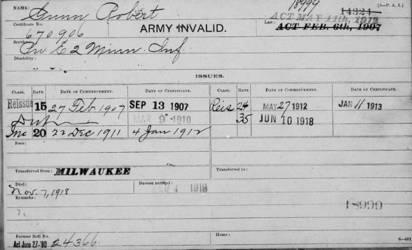 NAME: Gunn Robert (3-P. A. I.)
Certificate No. ARMY INVALID. ACT MAY 11th, 1912
670906 ACT FEB. 6th, 1907
Service:
Co E 2 Minn Inf
Disability:
ISSUES.
CLASS. RATE. DATE OF COMMENCEMENT. DATE OF CERTIFICATE. CLASS. RATE. DATE OF COMMENCEMENT. DATE OF CERTIFICATE.
Reissue 15 27 Feb 1907 SEP 13 1907 Reis 24 MAY 27 1912 JAN 11 1913
35 JUN 10 1918
Inc 20 22 Dec 1911 4 Jan 1912
Transferred from: MILWAUKEE Transferred to:
Died: Nov. 7, 1918
Remarks:
Former Roll No.
Act June 27-90 24366